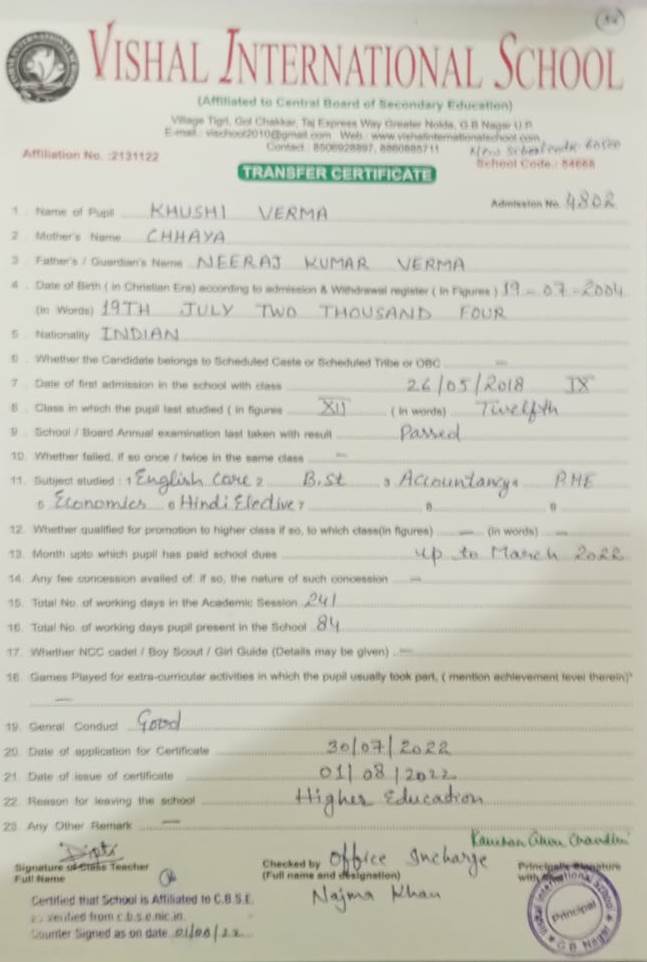 VISHAL INTERNATIONAL SCHOOL
(Affiliated to Central Board of Secondary Education)
Village Tigri, Gol Chakkar, Taj Express Way Greater Noida, G.B Nagar U.P.
E-mail : vischool2010@gmail.com Web : www.vishalinternationalschool.com
Contact : 8506928897, 8860885711
New School code 60500
Affiliation No. :2131122
School Code : 84668
TRANSFER CERTIFICATE
Admission No. 4802
1 . Name of Pupil KHUSHI VERMA
2 . Mother's Name CHHAYA
3 . Father's / Guardian's Name NEERAJ KUMAR VERMA
4 . Date of Birth ( in Christian Era) according to admission & Withdrawal register ( In Figures ) 19-07-2004
(in Words) 19TH JULY TWO THOUSAND FOUR
5 . Nationality INDIAN
6 . Whether the Candidate belongs to Scheduled Caste or Scheduled Tribe or OBC —
7 . Date of first admission in the school with class 26/05/2018 IX
8 . Class in which the pupil last studied ( in figures XII ( in words) Twelfth
9 . School / Board Annual examination last taken with result Passed
10. Whether failed, if so once / twice in the same class —
11. Subject studied : 1 English Core 2 B.St 3 Accountancy 4 P.H.E
5 Economics 6 Hindi Elective 7 8 9
12. Whether qualified for promotion to higher class if so, to which class(in figures) — (in words) —
13. Month upto which pupil has paid school dues up to March 2022
14. Any fee concession availed of: if so, the nature of such concession —
15. Total No. of working days in the Academic Session 241
16. Total No. of working days pupil present in the School 84
17. Whether NCC cadet / Boy Scout / Girl Guide (Details may be given) —
18. Games Played for extra-curricular activities in which the pupil usually took part, ( mention achievement level therein)*
—
19. Genral Conduct Good
20. Date of application for Certificate 30/07/2022
21. Date of issue of certificate 01/08/2022
22. Reason for leaving the school Higher Education
23. Any Other Remark —
Dipti
Signature of Class Teacher
Full Name
Checked by Office Incharge
(Full name and designation)
Najma Khan
Principal's Signature
with
Certified that School is Affiliated to C.B.S.E.
verified from c.b.s.e.nic.in.
Counter Signed as on date 01/08/22
Vishal International School
Principal
G.B. Nagar